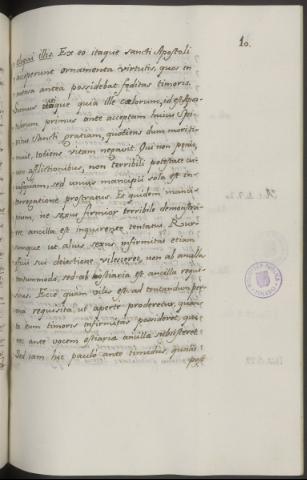 10.
eloqui illis. Ex eo itaque sancti Apostoli
acceperunt ornamenta virtutis, quos in
antea possidebat foeditas timoris.
itaque quia ille coelorum, id est Apos-
tolorum primus ante acceptam huius Spi-
ritus Sancti gratiam, quotiens dum mori ti-
muit, totiens vitam negavit. Qui non poenis,
non afflictionibus, non terribili potestate cu-
iusquam, sed unius mancipii sola est in-
terrogatione prostratus. Et quidem manci-
pium, ne sexus firmior terribile demonstra-
ret ancilla est inquirente tentatus. Rur-
sumque ut ipsius sexus infirmitas etiam
sui deiectione vilesceret, non ab ancilla
tantummodo, sed ab ostiaria est ancilla requi-
situs. Ecce quam vilis est ad tentandum per-
sona requisita, ut aperte proderetur, quan-
ta eum timoris infirmitas possideret, qui
nec ante vocem ostiariae ancillae subsisteret.
Sed iam hic paulo ante timidus, qualis
post